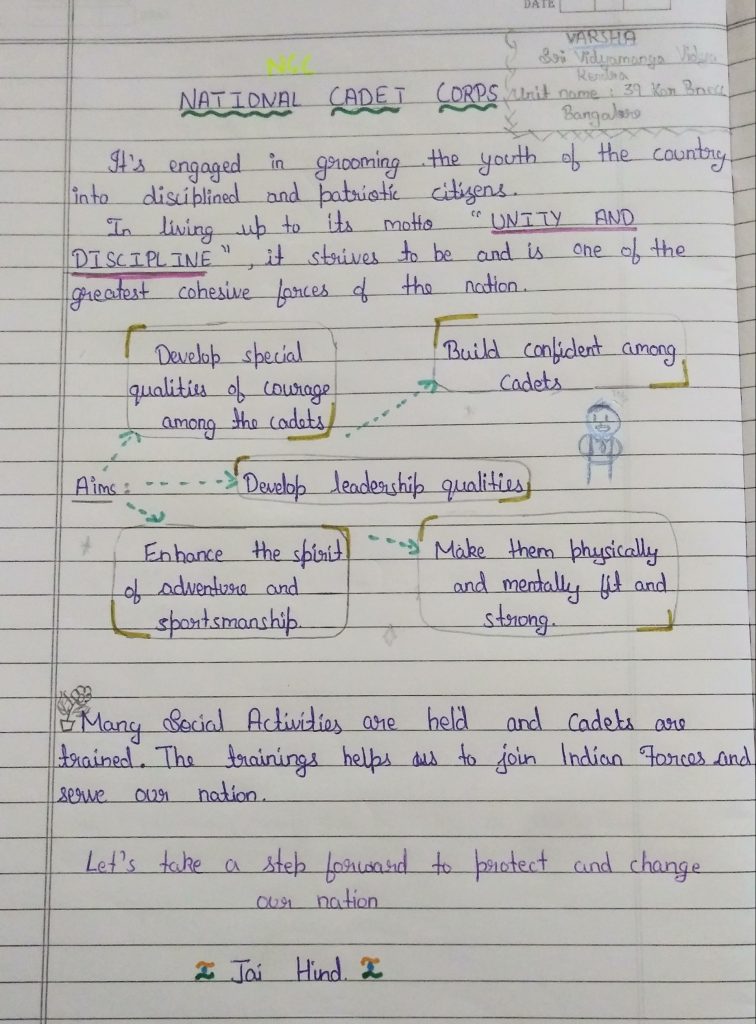 DATE
VARSHA
Sri Vidyamanga Vidya
Kendra
Unit name : 39 Kar Bncc
Bangalore
NCC
NATIONAL CADET CORPS
It's engaged in grooming the youth of the country
into disciplined and patriotic citizens.
In living up to its motto "UNITY AND
DISCIPLINE", it strives to be and is one of the
greatest cohesive forces of the nation.
Develop special
qualities of courage
among the cadets
Build confident among
Cadets
Aims :
Develop leadership qualities
Enhance the spirit
of adventure and
sportsmanship.
Make them physically
and mentally fit and
strong.
Many Social Activities are held and Cadets are
trained. The trainings helps us to join Indian Forces and
serve our nation.
Let's take a step forward to protect and change
our nation
Jai Hind.